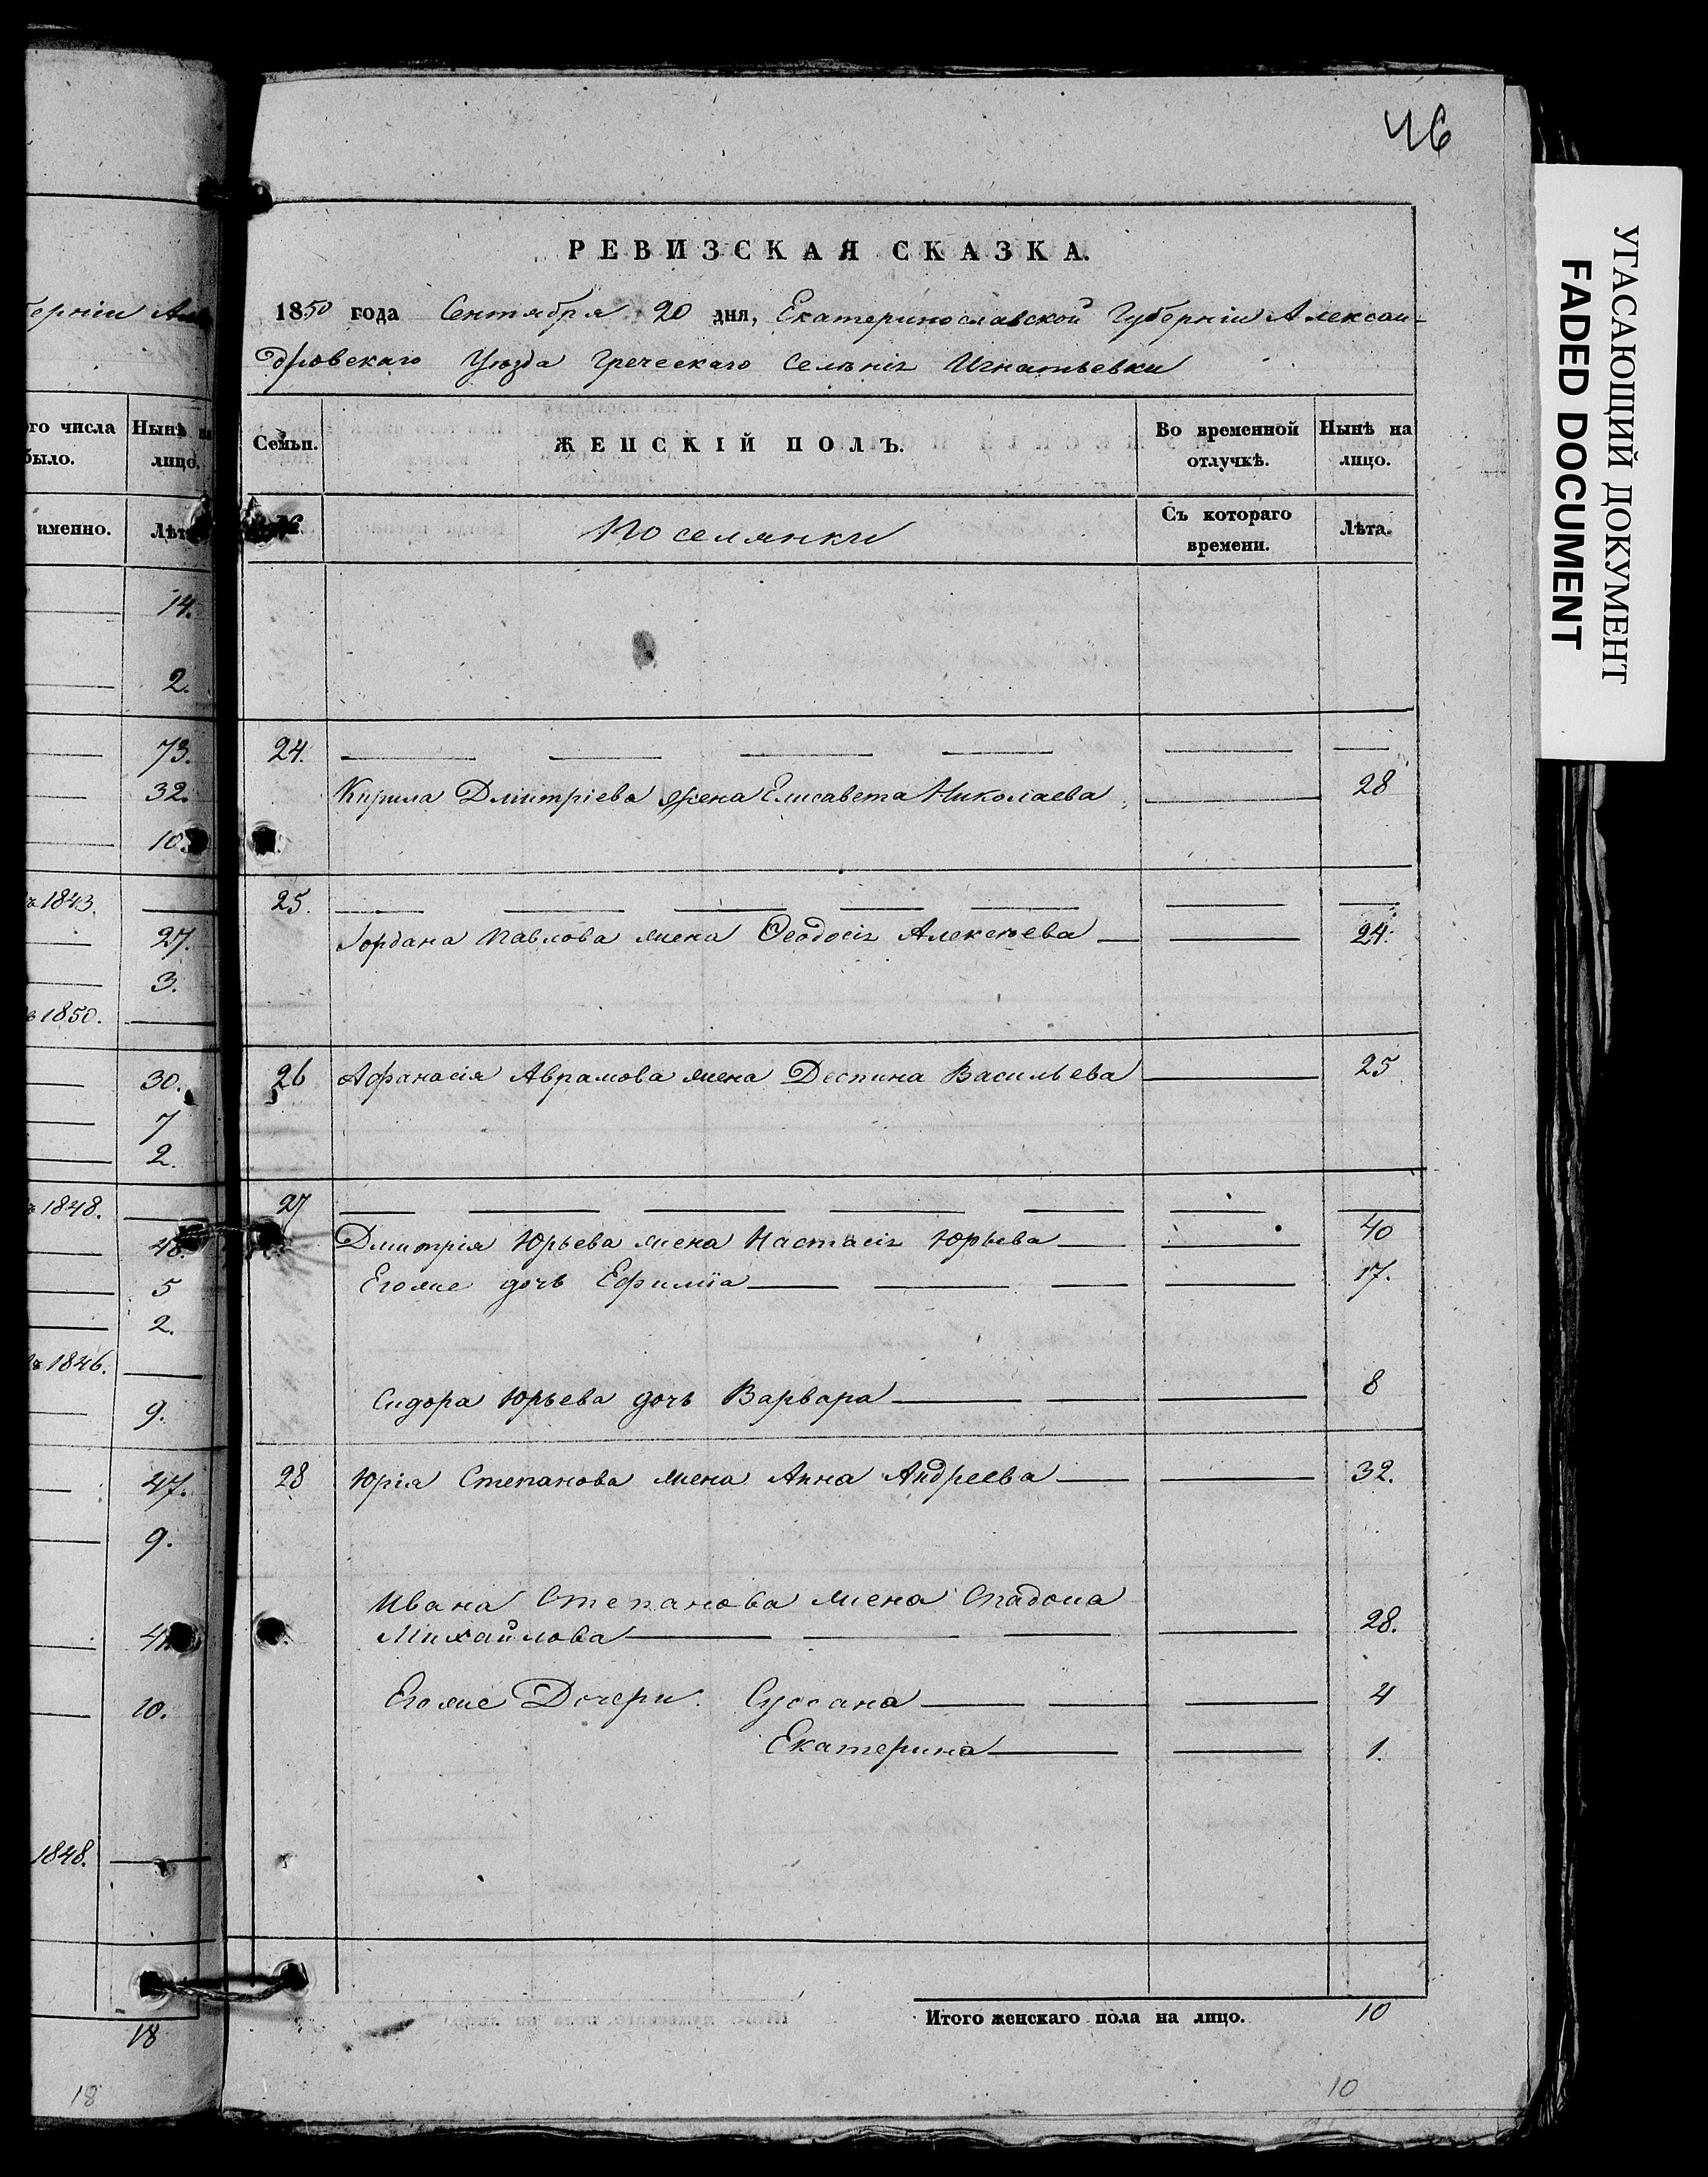 46
РЕВИЗСКАЯ СКАЗКА.
1850 года Сентября 20 дня, Екатеринославской Губерніи Алексан-
дровскаго Уѣзда Греческаго Селенія Игнатьевки
Семьи. ЖЕНСКІЙ ПОЛЪ. Во временной отлучкѣ. Нынѣ на лицо.
№ Поселянки Съ котораго времени. Лѣта.
24.
Кирила Дмитріева жена Елисавета Николаева 28
25.
Іордана Павлова жена Ѳеодосія Алексѣева 24.
26 Афанасія Аврамова жена Деспина Васильева 25
27
Дмитрія Юрьева жена Настасія Юрьева 40
Егоже дочь Ефимія 17.
Сидора Юрьева дочь Варвара 8
28 Юрія Степанова жена Анна Андреева 32.
Ивана Степанова жена
Михайлова 28.
Егоже Дочери. Суссана 4
Екатерина 1.
Итого женскаго пола на лицо. 10
10
го числа Нынѣ на
было. лицо.
именно. Лѣта
14.
2.
73.
32.
10.
1843.
27.
3.
1850.
30.
7
2.
1848.
5
2.
1846.
9.
47.
9.
10.
1848.
18
18
УГАСАЮЩИЙ ДОКУМЕНТ
FADED DOCUMENT